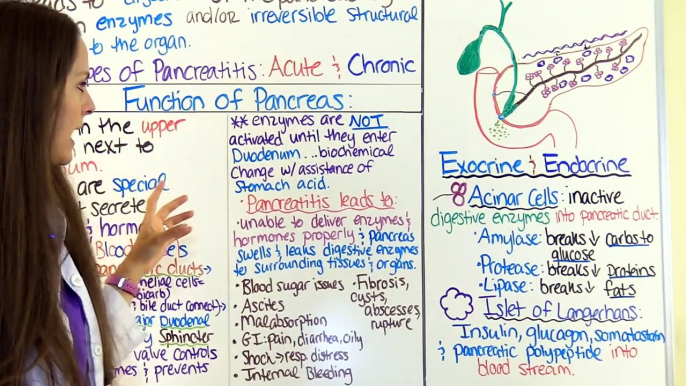 enzymes and/or irreversible structural
to the organ.
of Pancreatitis: Acute & Chronic
Function of Pancreas:
in the upper
next to
are special
secrete
& hormo
Blood
ducts→
cells-
bicarb)
& bile duct connect)→
Duodenal
Sphincter
valve controls
& prevents
** enzymes are NOT
activated until they enter
Duodenum...biochemical
change w/ assistance of
Stomach acid.
· Pancreatitis leads to:
· unable to deliver enzymes &
hormones properly & pancreas
swells & leaks digestive enzymes
to surrounding tissues & organs.
• Blood sugar issues
• Ascites
• Malabsorption
• GI: pain, diarrhea, oily
• Shock→resp. distress
• Internal Bleeding
• Fibrosis,
cysts,
abscesses,
rupture
Exocrine & Endocrine
Acinar Cells: inactive
digestive enzymes into pancreatic duct.
· Amylase: breaks ↓ carbs to
glucose
· Protease: breaks ↓ Proteins
· Lipase: breaks ↓ fats
Islet of Langerhans:
Insulin, glucagon, somatostatin
& pancreatic polypeptide into
blood stream.